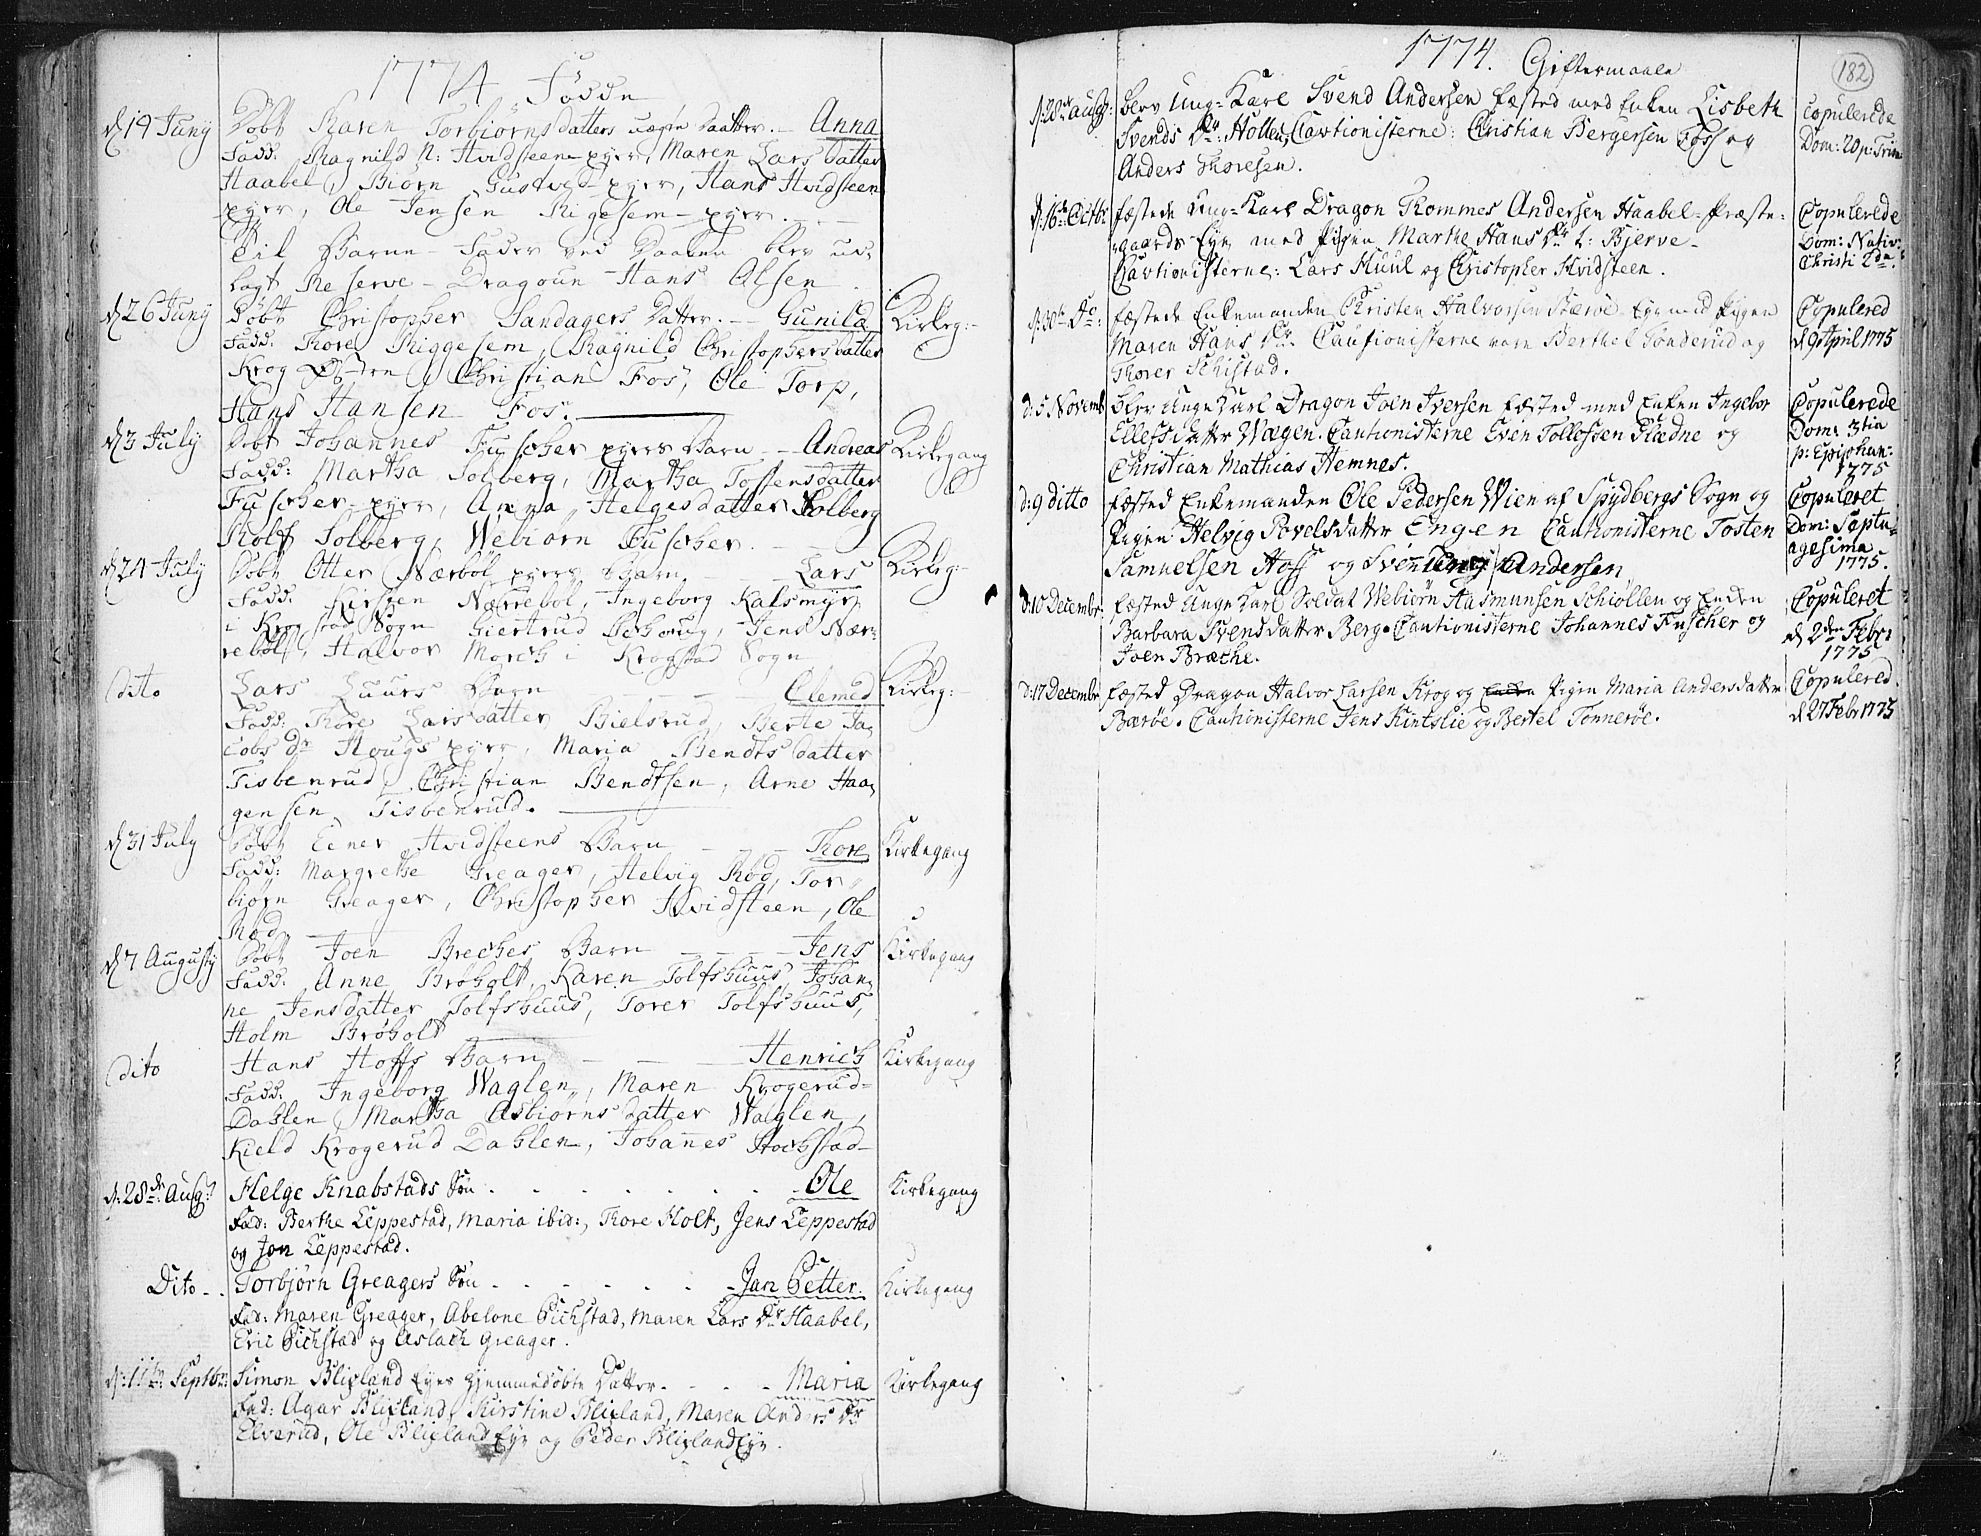 1774 Fødde
d 19 Juny Døbt Karen Torbiørnsdatters uægte Daatter. - Anna
Fadd: Ragnild N: Hvidsteen-eyer, Maren Larsdatter
Haabel, Biørn Gustved-eyer, Hans Hvidsteen
eyer, Ole Jensen Rigesem-eyer.
Til Barne-Fader ved Daaben blev ud-
lagt Reserve-Dragoun Hans Olsen.
d 26 Juny Døbt Christopher Sandagers Datter. - Gunild Kirkeg:
Fadd: Thore Riggesem, Ragnild Christophersdatter
Krog Christian Fos, Ole Torp,
Hans Hansen Fos.
d 3 July Døbt Johannes Fuscher eyers Barn - Andreas Kirkegang
Fadd: Martha Solberg, Martha Tostensdatter
Fuscher-eyer, Anna Helgesdatter Solberg
Rolf Solberg, Webiørn Fuscher.
d 24 July Døbt Otter Nærbøl eyers Barn - Lars Kirkeg:
Fadd. Kirsten Nærrebøl, Ingeborg Kalsmyr
i Krogstad Sogn Giertrud Nær-
rebøl, Halvor Morch i Krogstad Sogn
dito Lars Luurs Barn - Clemed Kirkeg:
Fadd: Thore Larsdatter Bielsrud, Berte Ja-
cobs dr Hougs eyer, Maria Bendtsdatter
Tisbenrud, Christian Bendtsen, Arne Haa-
gensen Tisbenrud.
d 31 July Døbt Ener Hvidsteens Barn - Thore Kirkegang
Fadd: Margrethe Greager, Helvig Rød, Tor-
biørn Greager, Christopher Hvidsteen, Ole
Rød.
d 7 Augusty Døbt Joen Breches Barn - Jens Kirkegang
Fadd. Anne Brøholt, Karen Tolfshuus, Johan-
ne Jensdatter Tolfshuus, Torer Tolfshuus,
Holm Brøholt
dito Hans Hoffs Barn - Henrich Kirkegang
Fadd. Ingeborg Waglen, Maren Krogerud-
Dahlen, Martha Asbiørnsdatter Waglen,
Kield Krogerud Dahlen, Johannes Hochstad-
d: 28de Aug: Helge Knabstads Søn - Ole Kirkegang
Fad: Berthe Leppestad, Maria ibid:, Thore Holt, Jens Leppestad
og Jon Leppestad.
Dito - Torbjørn Greagers Søn - Jan Petter. Kirkegang
Fad: Maren Greager, Abelone Pichstad, Maren Lars Dr Haabel,
Eric Pichstad og Aslach Greager.
d: 11te Septbr: Simon Blixland Eyes hjemmedøbte Datter - Maria Kirkegang
Fad: Agar Blixland, Kirstine Blixland, Maren Anders Dr
Elverud, Ole Blixland Eye og Peder Blixland Eye.
1774. Giftermaale 182
d: 28de aug: blev Ung-Karl Svend Andersen fæsted med Enken Lisbeth Copulerede
Svends Dr: Hollen, Cavtionisterne: Christian Bergersen Foss og Dom: 20 p: Trin:
Anders Thoresen.
d: 16de Octbr: fæstede Ung-Karl Dragon Thommes Andersen Haabel-Præste- Copulerede
gaards Eye med Pigen Marthe Hans Dr: Bjerve- Dom: Nativ:
Cavtionisterne: Lars Huul og Christopher Hvidsteen. Christi 2da.
d: 30te Do: fæstede Enkemanden Christen Halvorsen Bærøe-Eye med Pigen Copulered
Maren Hans Dr Cautionisterne vare Berthel Tonderud og d 9 April 1775
Thorer Schistad.
d: 5 Novemb blev Unge Karl Dragon Joen Iversen fæsted med Enken Ingebor Copulerede
Ellefsdatter Wægen. Cautionisterne Even Tollefssen Glædne og Dom: 3tia
Christian Mathias Hemnes. p: Epiphan: 1775
d: 9 ditto fæsted Enkemanden Ole Pedersen Wien af Spydbergs Sogn og Copuleret
Pigen Helvig Povelsdatter Engen Cautionisterne Tosten Dom: Septu-
Samuelsen Hoff og Sven Andersen agesima 1775.
d: 10 Decembr: fæsted Unge Karl Soldat Webiørn Aasmunsen Schiøllen og Enken Copuleret
Barbara Svendsdatter Berg. Cautionisterne Johannes Fuscher og d 2den Febr:
Joen Bræche. 1775
d: 17 Decembr fæsted Dragon Halvor Larsen Krog og Enken Pigen Maria Andersdatter Copulered.
Bærøe. Cautionisterne Jens Kintslie og Bertel Tonnerøe. d 27 Febr 1775